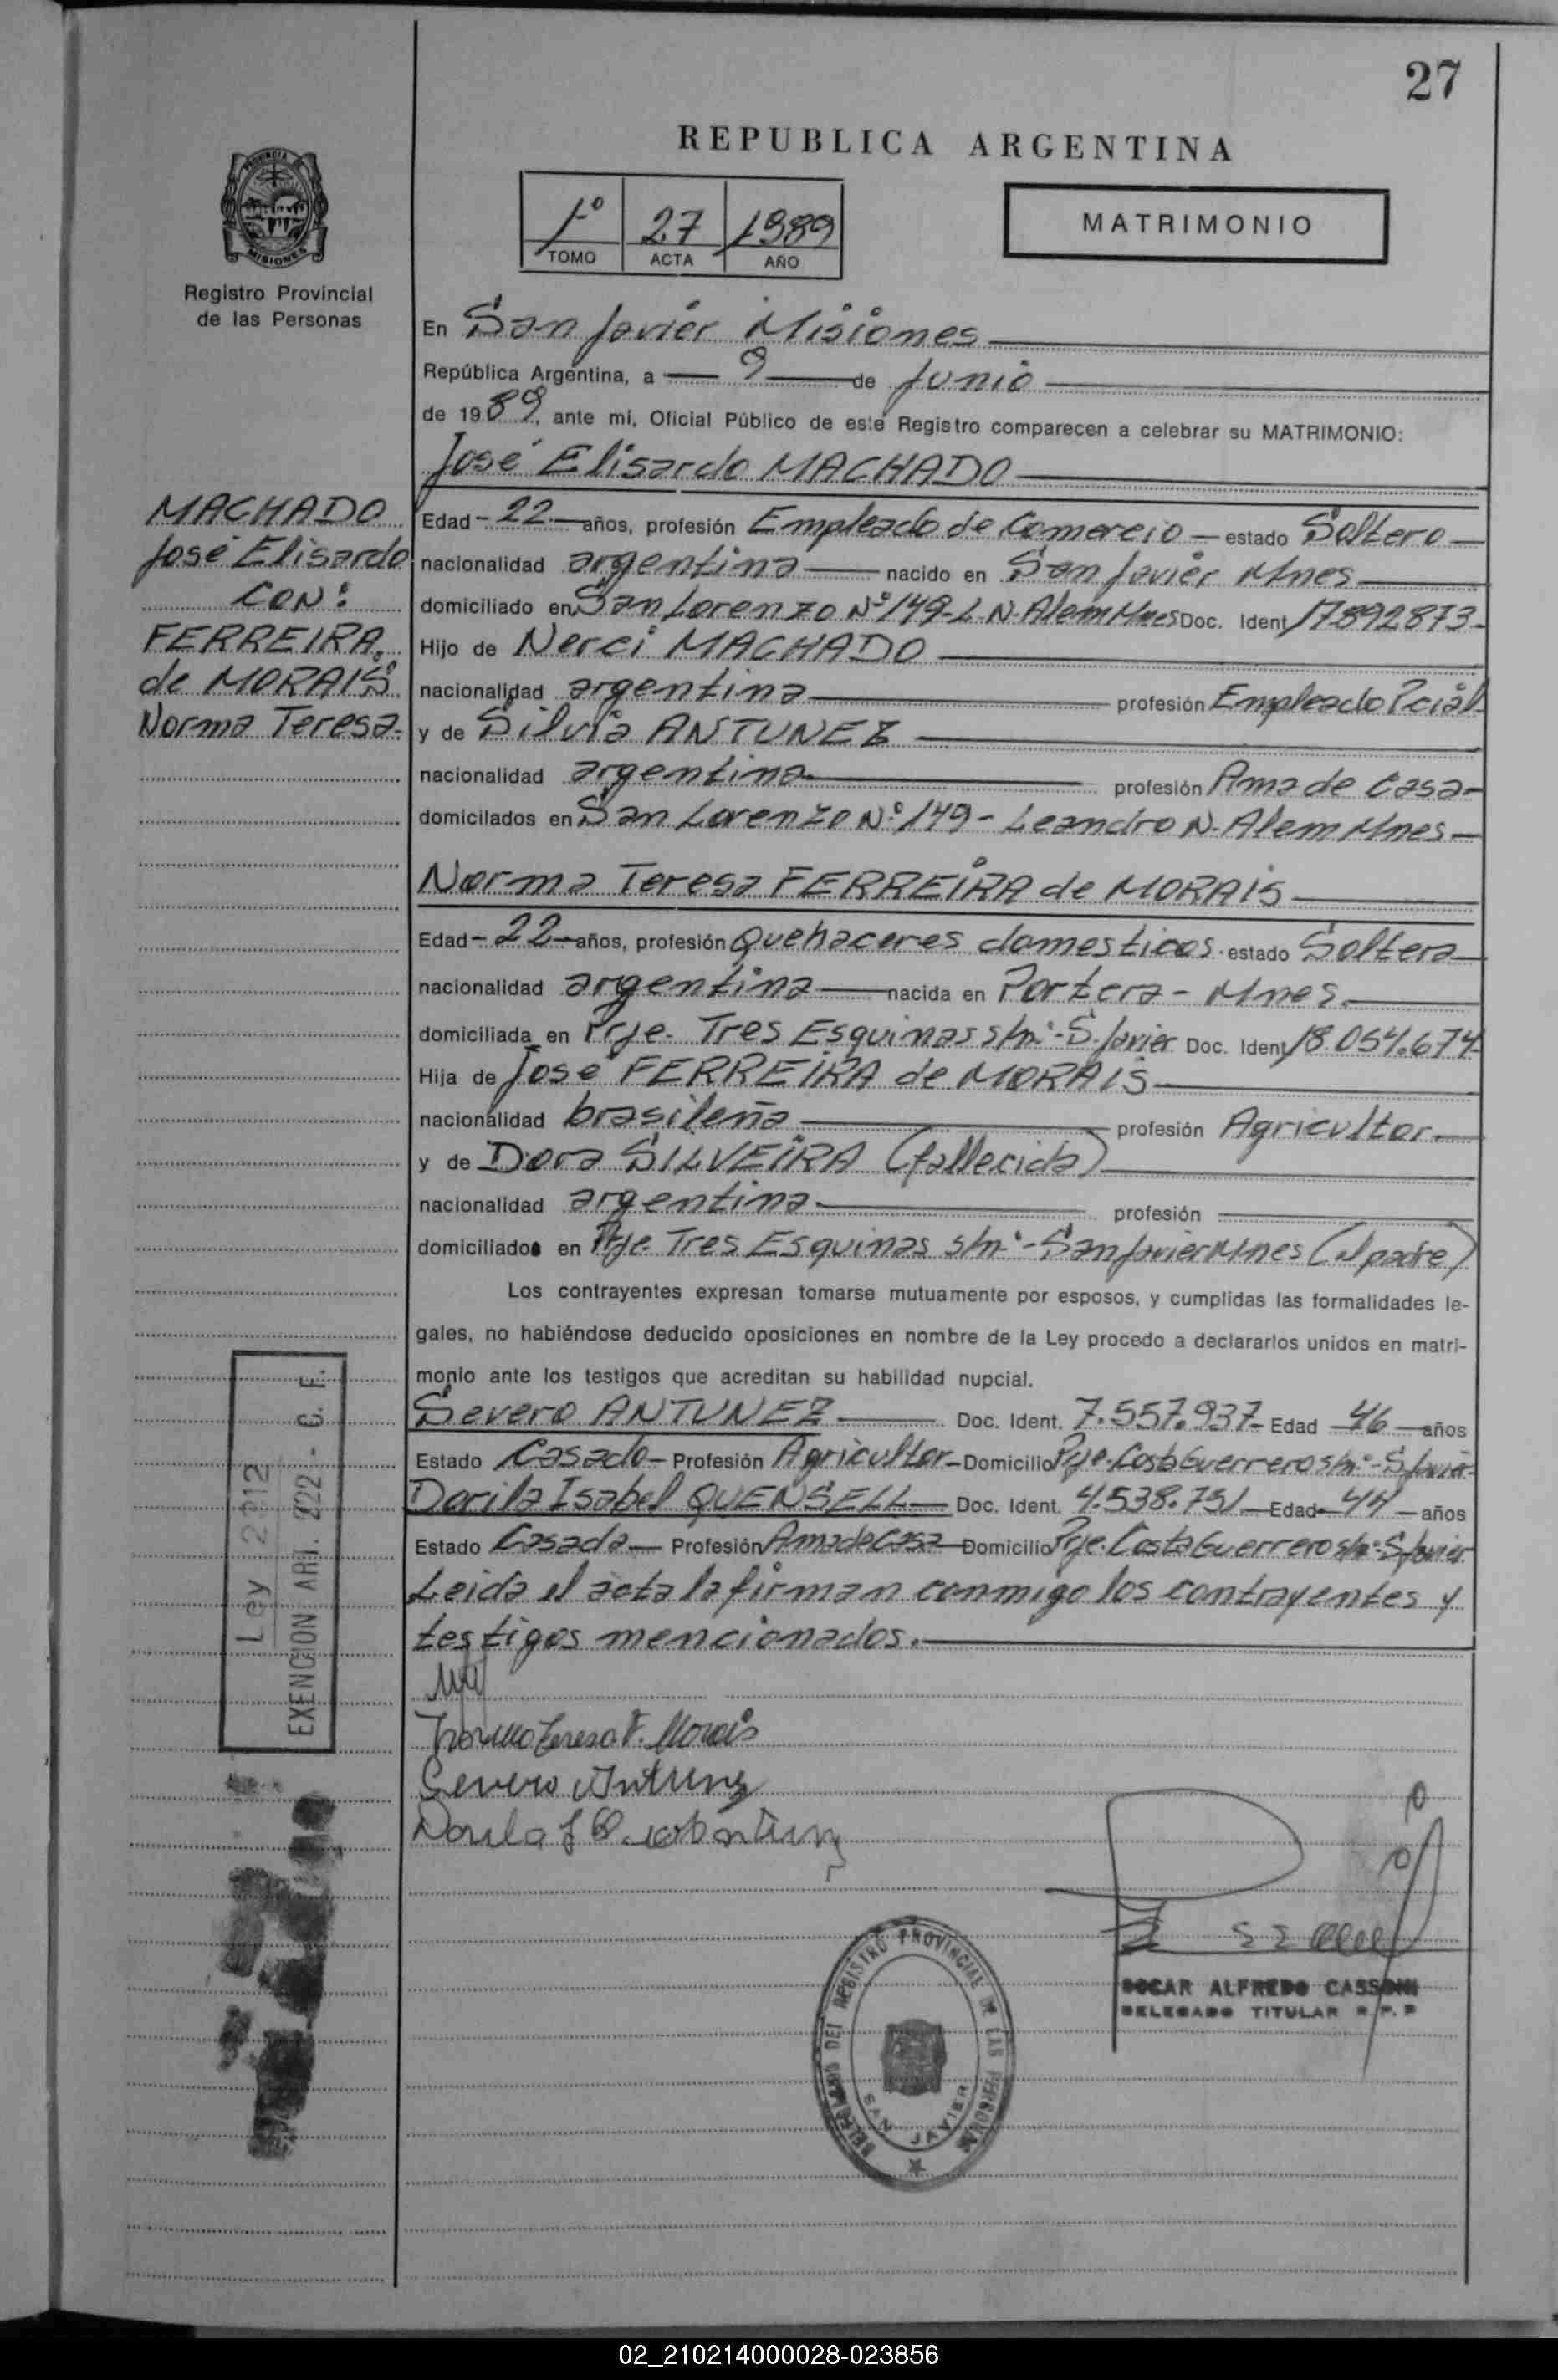 27
REPUBLICA ARGENTINA
1º 27 1989
TOMO ACTA AÑO
MATRIMONIO
PROVINCIA DE
MISIONES
Registro Provincial
de las Personas
En San Javier Misiones
República Argentina, a 9 de Junio
de 1989, ante mí, Oficial Público de este Registro comparecen a celebrar su MATRIMONIO:
José Elisardo MACHADO
MACHADO
José Elisardo
CON:
FERREIRA
de MORAIS
Norma Teresa-
Edad - 22 años, profesión Empleado de Comercio - estado Soltero
nacionalidad argentina nacido en San Javier Mnes
domiciliado en San Lorenzo Nº 149-L.N.Alem Mnes Doc. Ident 17.892873-
Hijo de Nerci MACHADO
nacionalidad argentina profesión Empleado Pcial
y de Silvia ANTUNEZ
nacionalidad argentina profesión Ama de Casa-
domicilados en San Lorenzo Nº 149 - Leandro N. Alem Mnes-
Norma Teresa FERREIRA de MORAIS
Edad - 22 años, profesión Quehaceres domesticos estado Soltera
nacionalidad argentina nacida en Portera - Mnes.
domiciliada en Pje. Tres Esquinas s/nº - S. Javier Doc. Ident 18.054.674
Hija de José FERREIRA de MORAIS
nacionalidad brasileña profesión Agricultor
y de Dora SILVEIRA (fallecida)
nacionalidad argentina profesión
domiciliados en Pje. Tres Esquinas s/nº - San Javier Mnes (el padre)
Los contrayentes expresan tomarse mutuamente por esposos, y cumplidas las formalidades le-
gales, no habiéndose deducido oposiciones en nombre de la Ley procedo a declararlos unidos en matri-
monio ante los testigos que acreditan su habilidad nupcial.
Severo ANTUNEZ Doc. Ident. 7.557.937- Edad 46 años
Estado Casado - Profesión Agricultor - Domicilio Pje. Costa Guerrero s/nº - S Javier
Dorila Isabel QUENSELL Doc. Ident. 4.538.751 Edad 44 años
Estado Casada Profesión Ama de Casa Domicilio Pje. Costa Guerrero s/nº - S Javier
Leida el acta la firman conmigo los contrayentes y
testigos mencionados.
Ley 2012
EXENCION ART. 222 - C. F.
Norma Teresa F. Morais
Severo Antunez
OSCAR ALFREDO CASSONI
DELEGADO TITULAR R.P.P
DEL REGISTRO PROVINCIAL DE LAS PERSONAS
SAN JAVIER
02_210214000028-023856